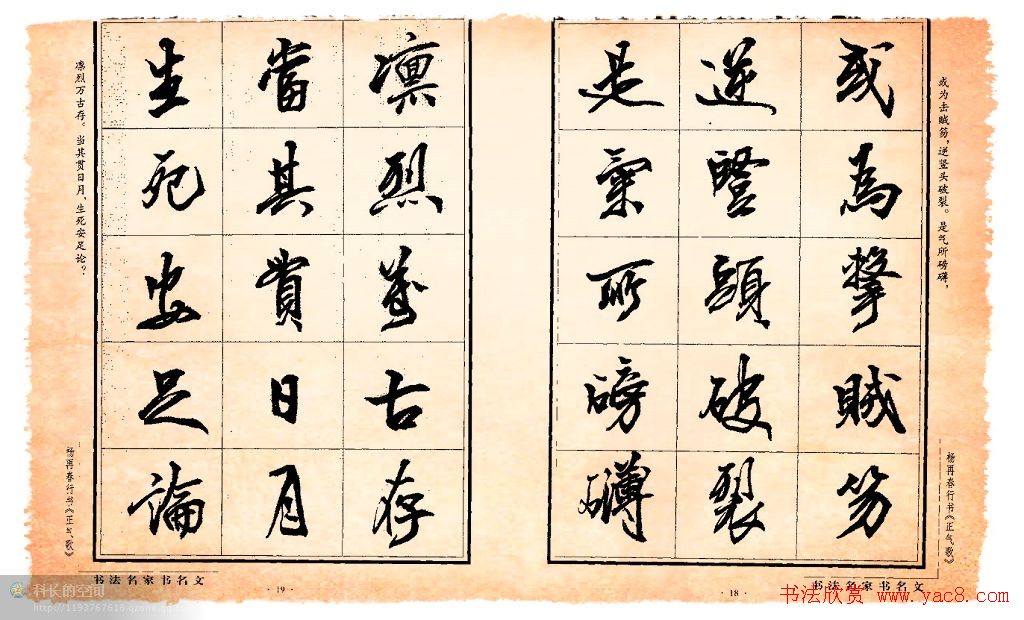 或為擊賊笏
逆豎頭破裂
是氣所磅礴
或为击贼笏，逆竖头破裂。是气所磅礴，
杨再春行书《正气歌》
书法名家书名文
· 18 ·
凛烈萬古存
當其貫日月
生死安足論
凛烈万古存。当其贯日月，生死安足论？
杨再春行书《正气歌》
书法名家书名文
· 19 ·
科长的空间
http://1193767618.qzone.qq.
书法欣赏 www.yac8.com